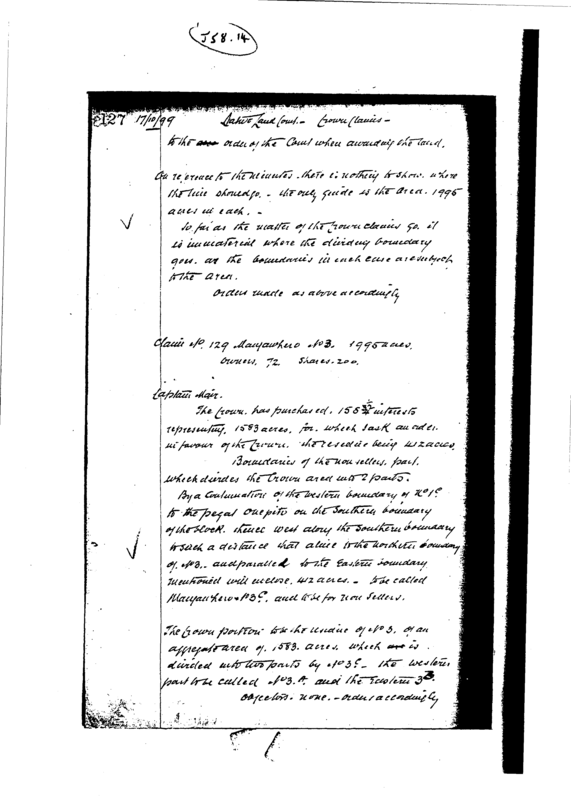 J58.14
127 17/10/99 Native Land Court - Crown Claims -
to the order of the Court when awarding the land.
On reference to the minutes. there is nothing to show. where
the line should go. - the only guide is the area. 1995
acres in each. -
So far as the matter of the Crown claims go. it
is immaterial where the dividing boundary
goes. as the boundaries in each case are subject
to the area.
Orders made as above accordingly
Claim No. 129 Mangawhero No 3. 1995 acres.
Owners. 72 Shares. 200.
Captain Mair.
The Crown. has purchased. 158 interests
representing. 1583 acres. for. which I ask an order.
in favour of the Crown. the residue being 412 acres.
Boundaries of the non sellers. part.
which divides the Crown area into 2 parts.
By a Continuation of the western boundary of No 1C
to the pegal Onepito on the Southern boundary
of the block. thence West along the Southern boundary
to such a distance that a line to the northern boundary
of. No 3.. and parallel to the Eastern boundary
mentioned will enclose. 412 acres. - to be called
Mangawhero No 3C. and to be for non sellers.
The Crown portion to be the residue of No 3. of an
aggregate area of. 1583. acres. which is.
divided into two parts by No 3C - the western
part to be called No 3. A. and the Eastern 3B.
Objectors. none. - orders accordingly